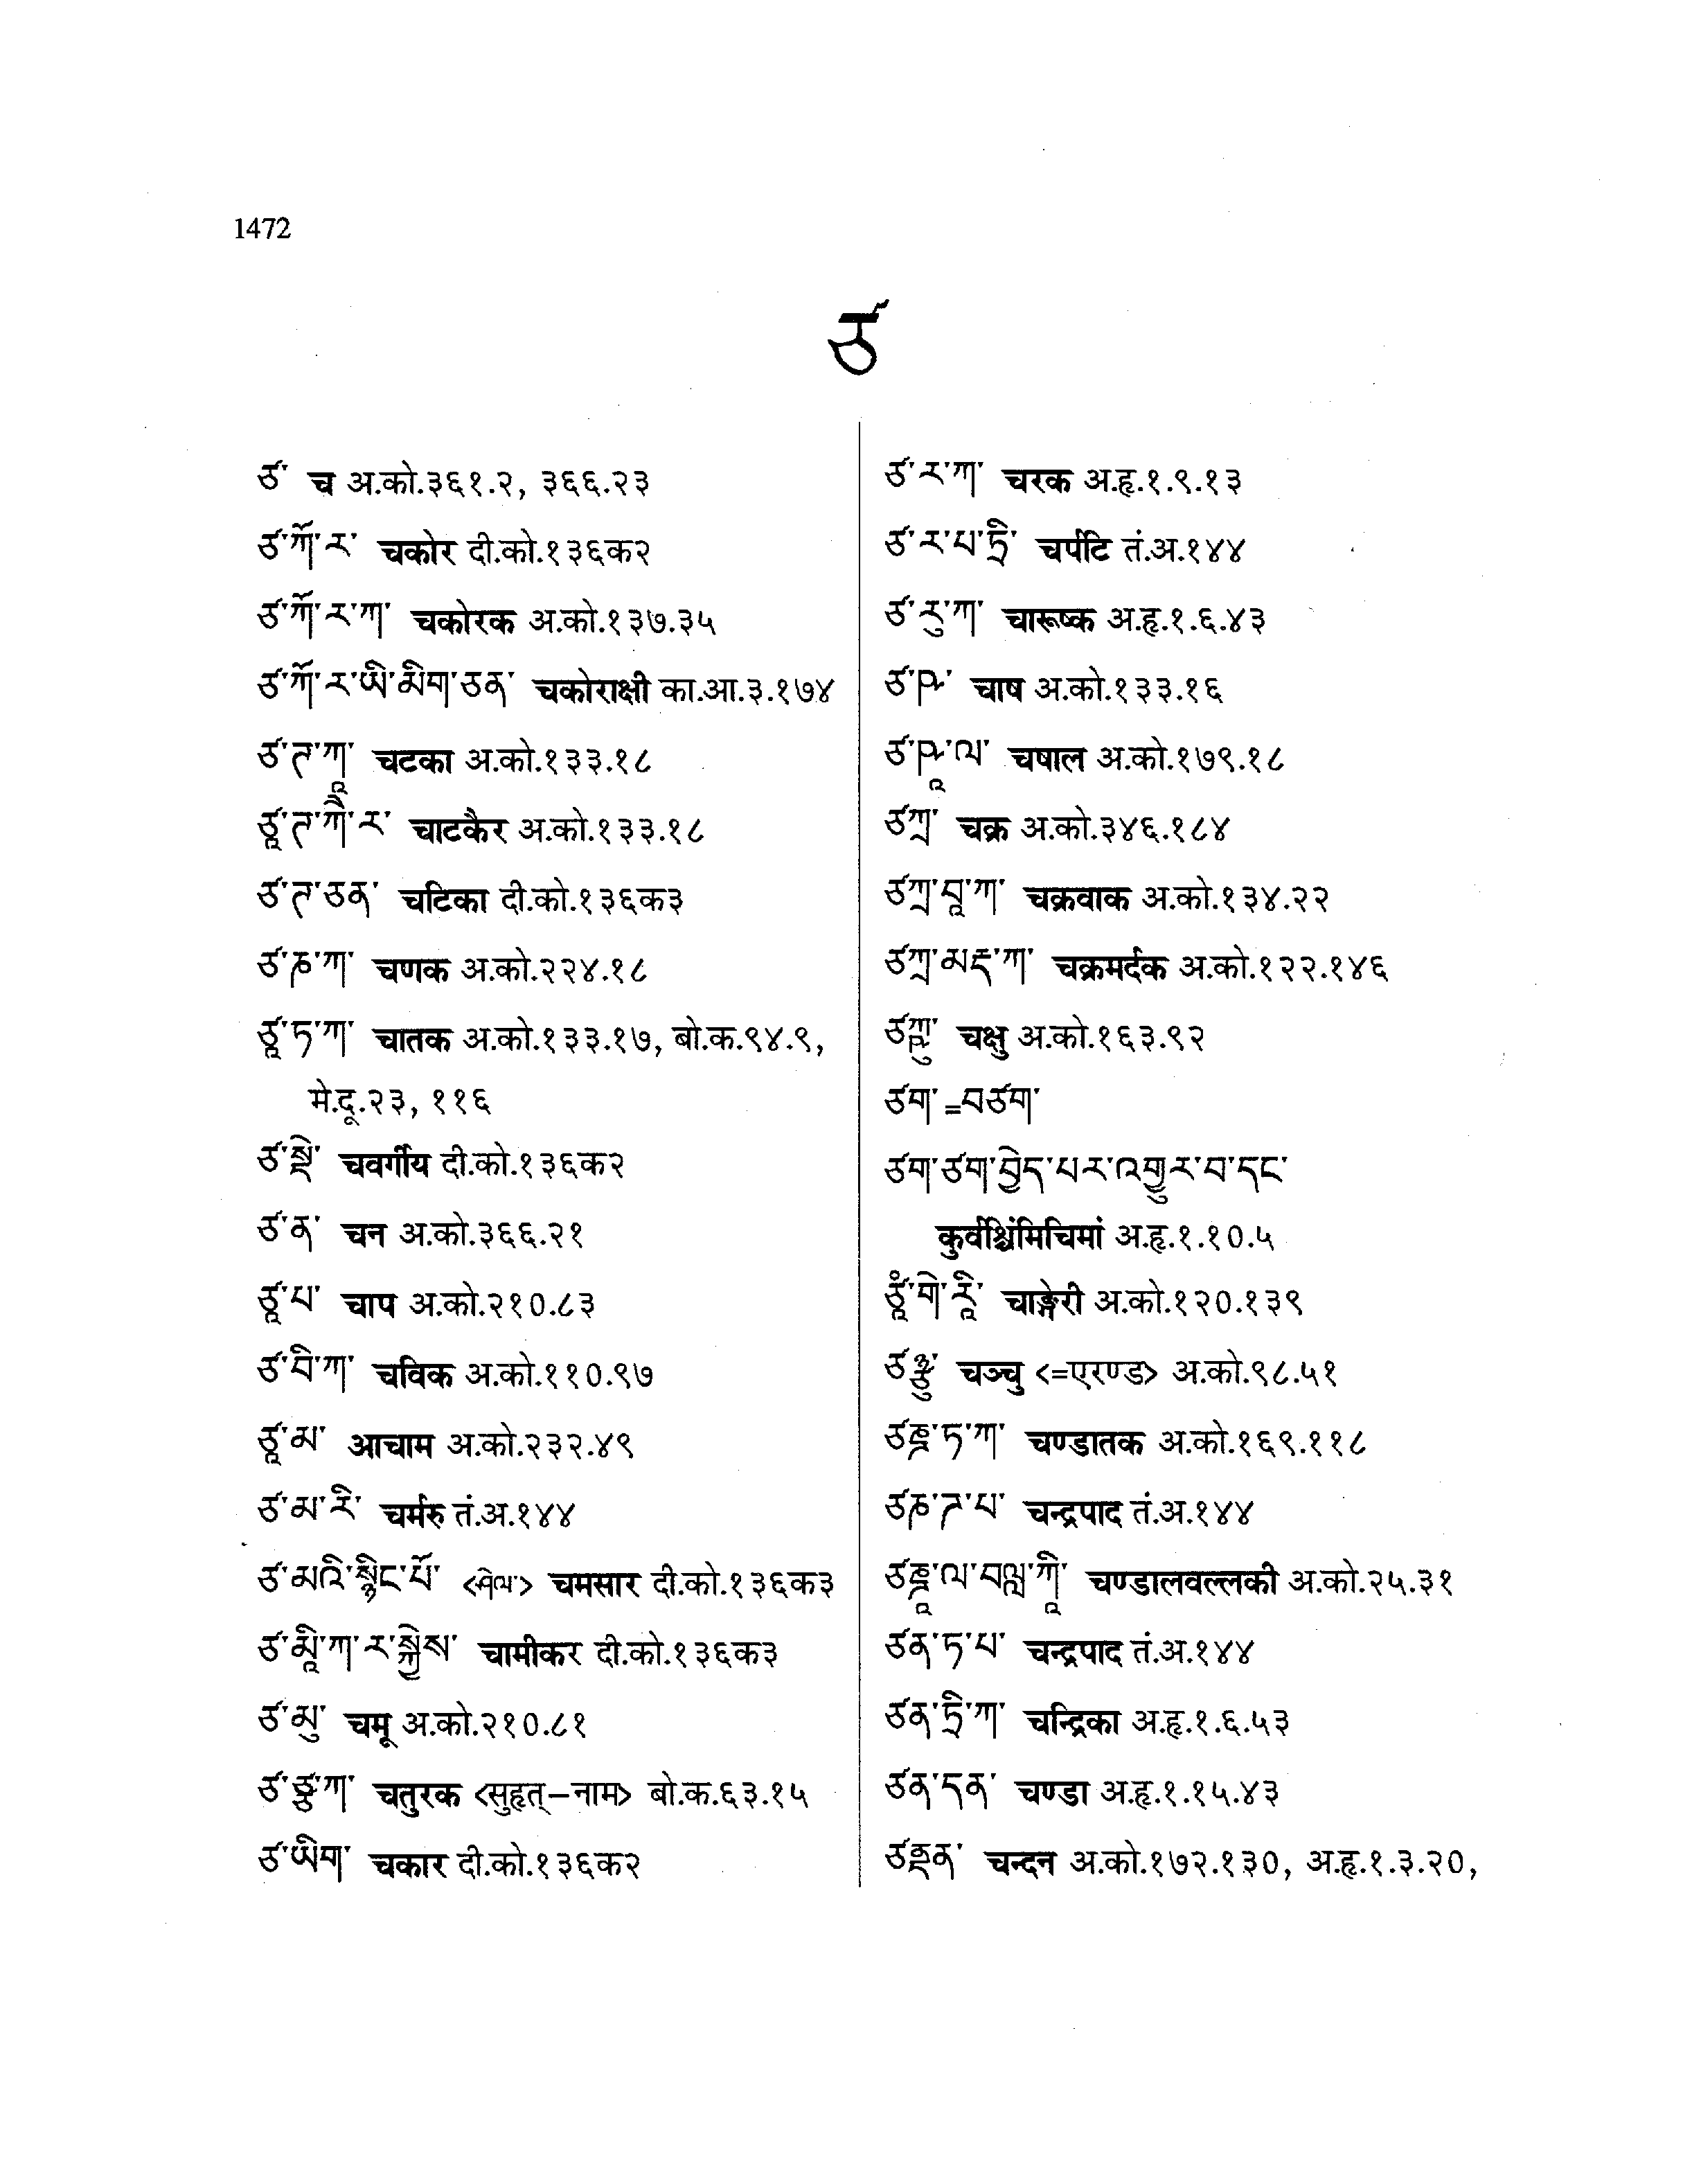 1472
ཙ
ཙ་ च अ.को.३६१.२, ३६६.२३
ཙ་ཀོ་ར་ चकोर दी.को.१३६क२
ཙ་ཀོ་ར་ཀ་ चकोरक अ.को.१३७.३५
ཙ་ཀོ་ར་ཡི་མིག་ཅན་ चकोराक्षी का.आ.३.१७४
ཙ་ཊ་ཀཱ་ चटका अ.को.१३३.१८
ཙཱ་ཊ་ཀཻ་ར་ चाटकैर अ.को.१३३.१८
ཙ་ཊ་ཅན་ चटिका दी.को.१३६क३
ཙ་ཎ་ཀ་ चणक अ.को.२२४.१८
ཙཱ་ཏ་ཀ་ चातक अ.को.१३३.१७, बो.क.९४.९,
मे.दू.२३, ११६
ཙ་སྡེ་ चवर्गीय दी.को.१३६क२
ཙ་ན་ चन अ.को.३६६.२१
ཙཱ་པ་ चाप अ.को.२१०.८३
ཙ་བི་ཀ་ चविक अ.को.११०.९७
ཙཱ་མ་ आचाम अ.को.२३२.४९
ཙ་མ་རི་ चर्मरु तं.अ.१४४
ཙ་མའི་སྙིང་པོ་ <ཤེལ་> चमसार दी.को.१३६क३
ཙ་མཱི་ཀ་ར་སྐྱེས་ चामीकर दी.को.१३६क३
ཙ་མུ་ चमू अ.को.२१०.८१
ཙ་ཙྪ་ཀ་ चतुरक <सुहृत्–नाम> बो.क.६३.१५
ཙ་ཡིག་ चकार दी.को.१३६क२
ཙ་ར་ཀ་ चरक अ.हृ.१.९.१३
ཙ་ར་པ་ཏྲི་ चर्पटि तं.अ.१४४
ཙ་རུ་ཀ་ चारूष्क अ.हृ.१.६.४३
ཙ་ཥ་ चाष अ.को.१३३.१६
ཙ་ཥཱ་ལ་ चषाल अ.को.१७९.१८
ཙཀྲ་ चक्र अ.को.३४६.१८४
ཙཀྲ་བཱ་ཀ་ चक्रवाक अ.को.१३४.२२
ཙཀྲ་མརྡ་ཀ་ चक्रमर्दक अ.को.१२२.१४६
ཙཀྵུ་ चक्षु अ.को.१६३.९२
ཙག་ =བཙག་
ཙག་ཙག་བྱེད་པར་འགྱུར་བ་དང་
कुर्वंश्चिंमिचिमां अ.हृ.१.१०.५
ཙཱཾ་གེ་རཱི་ चाङ्गेरी अ.को.१२०.१३९
ཙཉྩུ་ चञ्चु <=एरण्ड> अ.को.९८.५१
ཙཎྜ་ཏ་ཀ་ चण्डातक अ.को.१६९.११८
ཙཎ་ཌ་པ་ चन्द्रपाद तं.अ.१४४
ཙཎྜཱ་ལ་བལླ་ཀཱི་ चण्डालवल्लकी अ.को.२५.३१
ཙན་ཏ་པ་ चन्द्रपाद तं.अ.१४४
ཙན་ཏྲི་ཀ་ चन्द्रिका अ.हृ.१.६.५३
ཙན་དན་ चण्डा अ.हृ.१.१५.४३
ཙནྡན་ चन्दन अ.को.१७२.१३०, अ.हृ.१.३.२०,